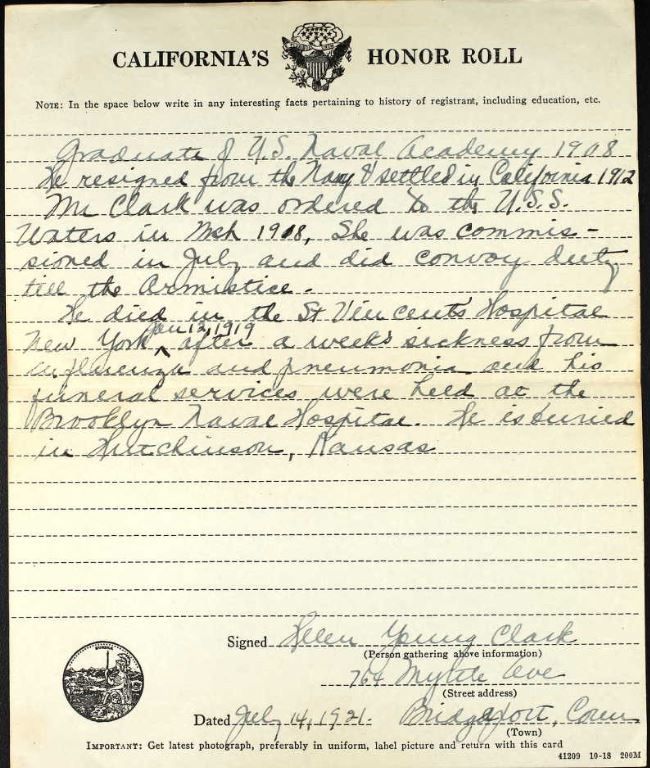 CALIFORNIA'S HONOR ROLL
NOTE: In the space below write in any interesting facts pertaining to history of registrant, including education, etc.
Graduate of U.S. Naval Academy 1908
He resigned from the Navy & settled in California 1912
Mr Clark was ordered to the U.S.S.
Waters in Mch 1918, She was commis-
sioned in July and did convoy duty
till the Armistice.
He died in the St Vincents Hospital
Jan 12, 1919
New York, after a weeks sickness from
influenza and pneumonia and his
funeral services were held at the
Brooklyn Naval Hospital. He is buried
in Hutchinson, Kansas
Signed Helen Young Clark
(Person gathering above information)
764 Myrtle Ave
(Street address)
Dated July 14, 1921. Bridgeport, Conn
(Town)
IMPORTANT: Get latest photograph, preferably in uniform, label picture and return with this card
41209 10-18 200M